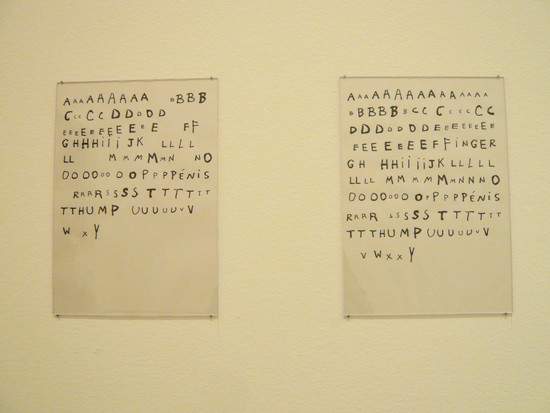 AAAAAAAAA BBBB
CCCCCDDDDD
EEEEEEEEEE FF
GHHHiiiJK LLLL
LL MMMMMN NO
OOOOOOOOPPPPÉNIS
RRRRSSSSTTTTTT
TTHUMP UUUUUUV
W XY
AAAAAAAAAAAAAA
BBBBBBCCCCCCCC
DDDDDDDEEEEEEE
EEEEEEFFINGER
GH HHiiiiJKLLLLL
LLLL MMMMMNNNO
OOOOOOOOPPPPPÉNIS
RRRR SSSSSTTTTTT
TTHUMP UUUUUUV
VWXXY